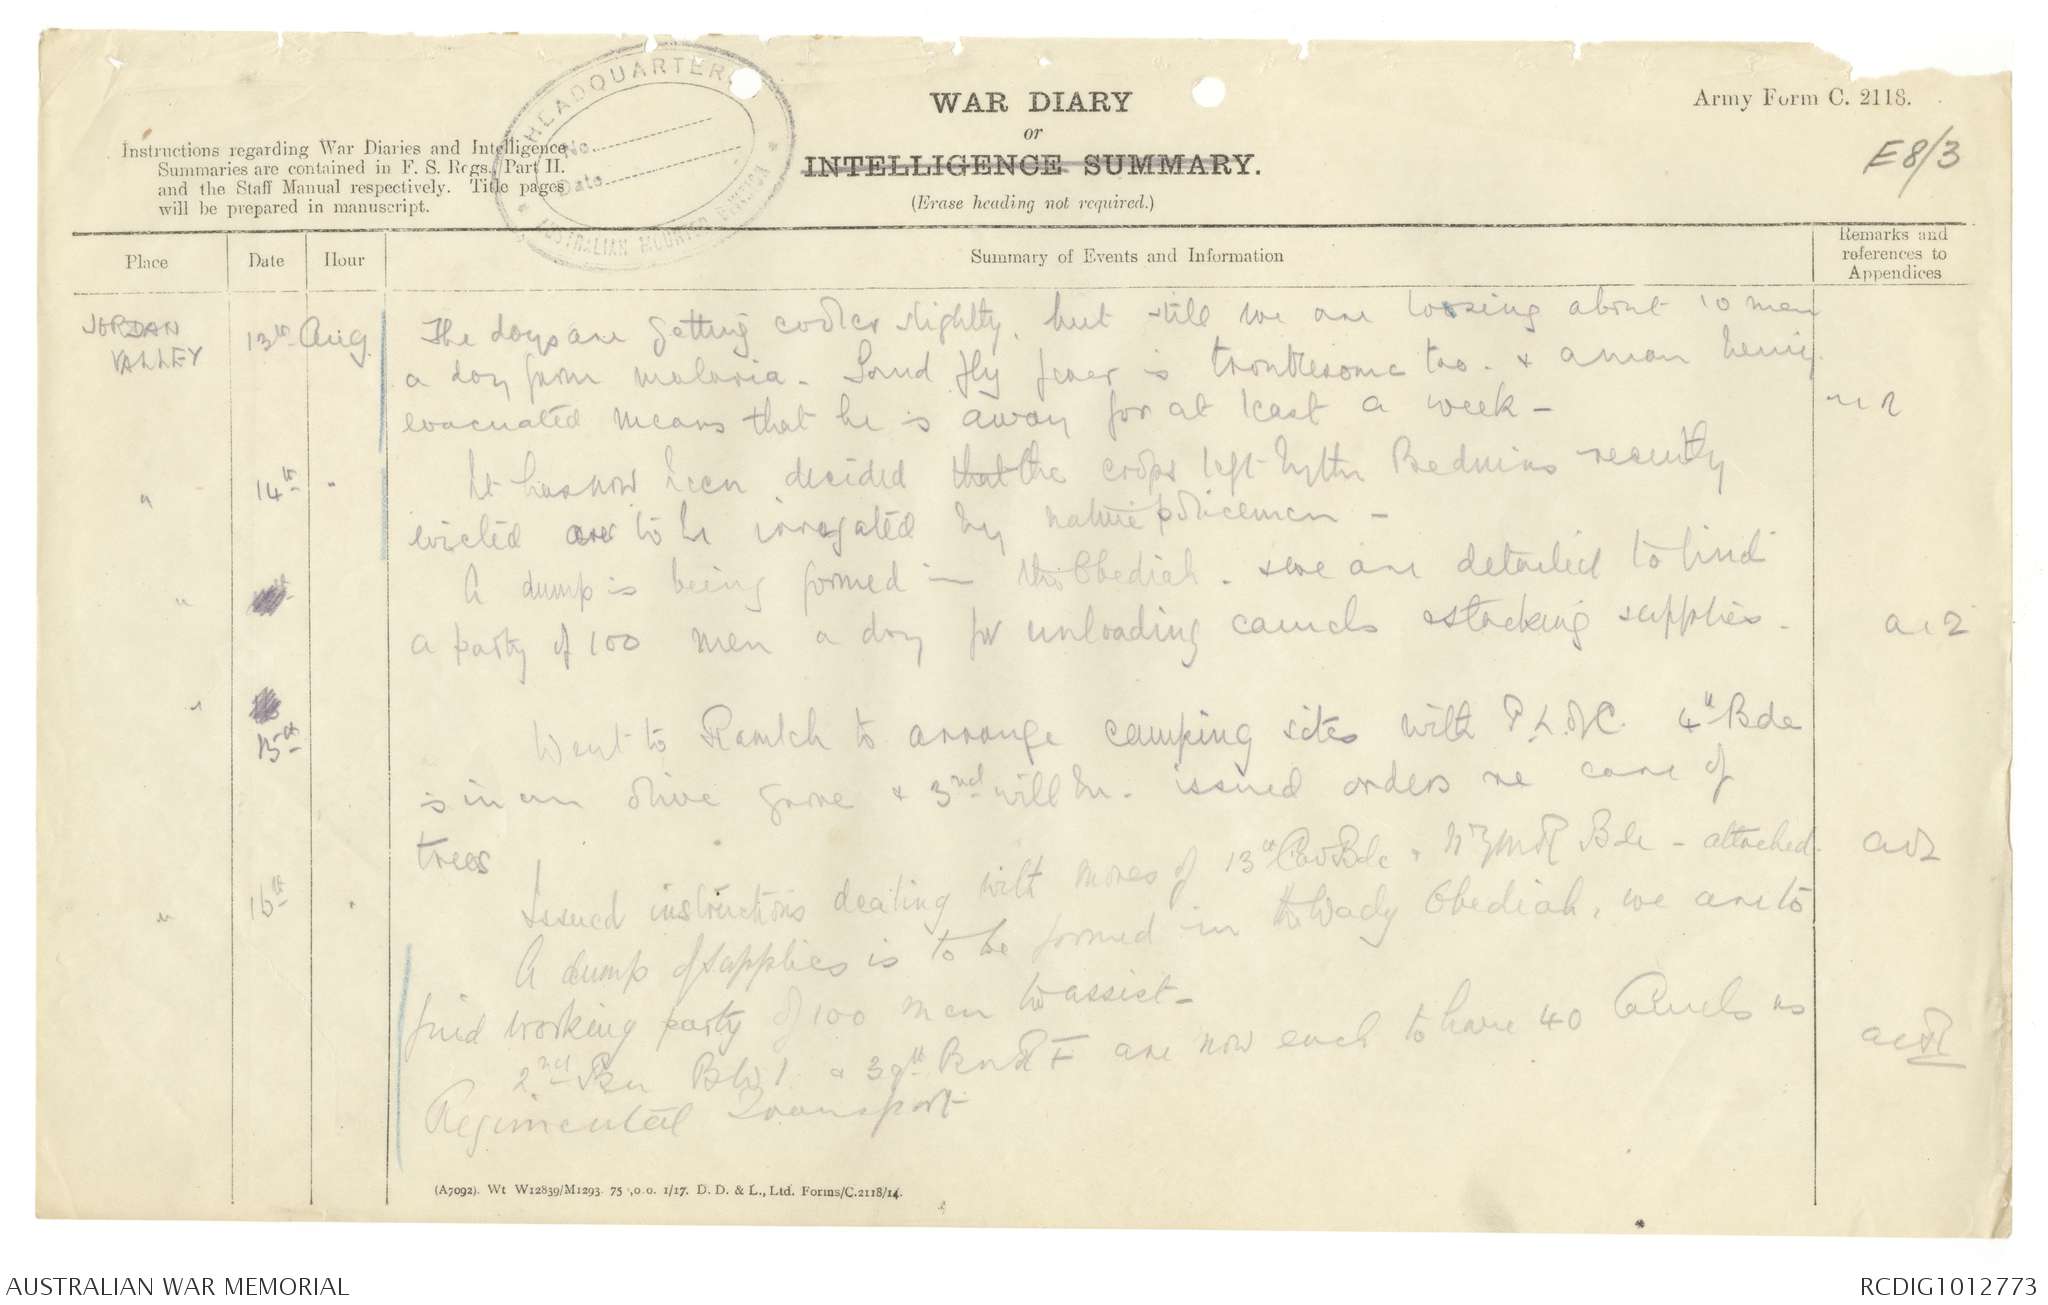 HEADQUARTERS
No.
Date
AUSTRALIAN MOUNTED DIVISION
WAR DIARY
or
INTELLIGENCE SUMMARY.
(Erase heading not required.)
Army Form C. 2118.
E8/3
Instructions regarding War Diaries and Intelligence
Summaries are contained in F. S. Regs., Part II.
and the Staff Manual respectively. Title pages
will be prepared in manuscript.
Place Date Hour Summary of Events and Information Remarks and references to Appendices
JORDAN VALLEY 13th Aug. The days are getting cooler slightly, but still we are loosing about 10 men
a day from malaria. Sand fly fever is troublesome too. & a man being
evacuated means that he is away for at least a week -
" 14th " It has now been decided that the crops left by the Beduins recently
evicted are to be irrogated by native policemen -
" A dump is being formed in the Obediah. & we are detailed to find
a party of 100 men a day for unloading camels & stacking supplies.
" 15th Went to Ramleh to arrange camping sites with P.L.of C. 4th Bde
is in an olive grove & 3rd will be. issued orders re care of
trees
" 16th " Issued instructions dealing with moves of 13th Cav Bde & NZMR Bde - attached.
A dump of supplies is to be formed in the Wady Obediah, we are to
find working party of 100 men to assist -
2nd Bn BWI. & 39th Bn RF are now each to have 40 Camels as
Regimental Transport -
(A7092). Wt W12839/M1293. 75 ,0 0. 1/17. D. D. & L., Ltd. Forms/C.2118/14.
AUSTRALIAN WAR MEMORIAL
RCDIG1012773